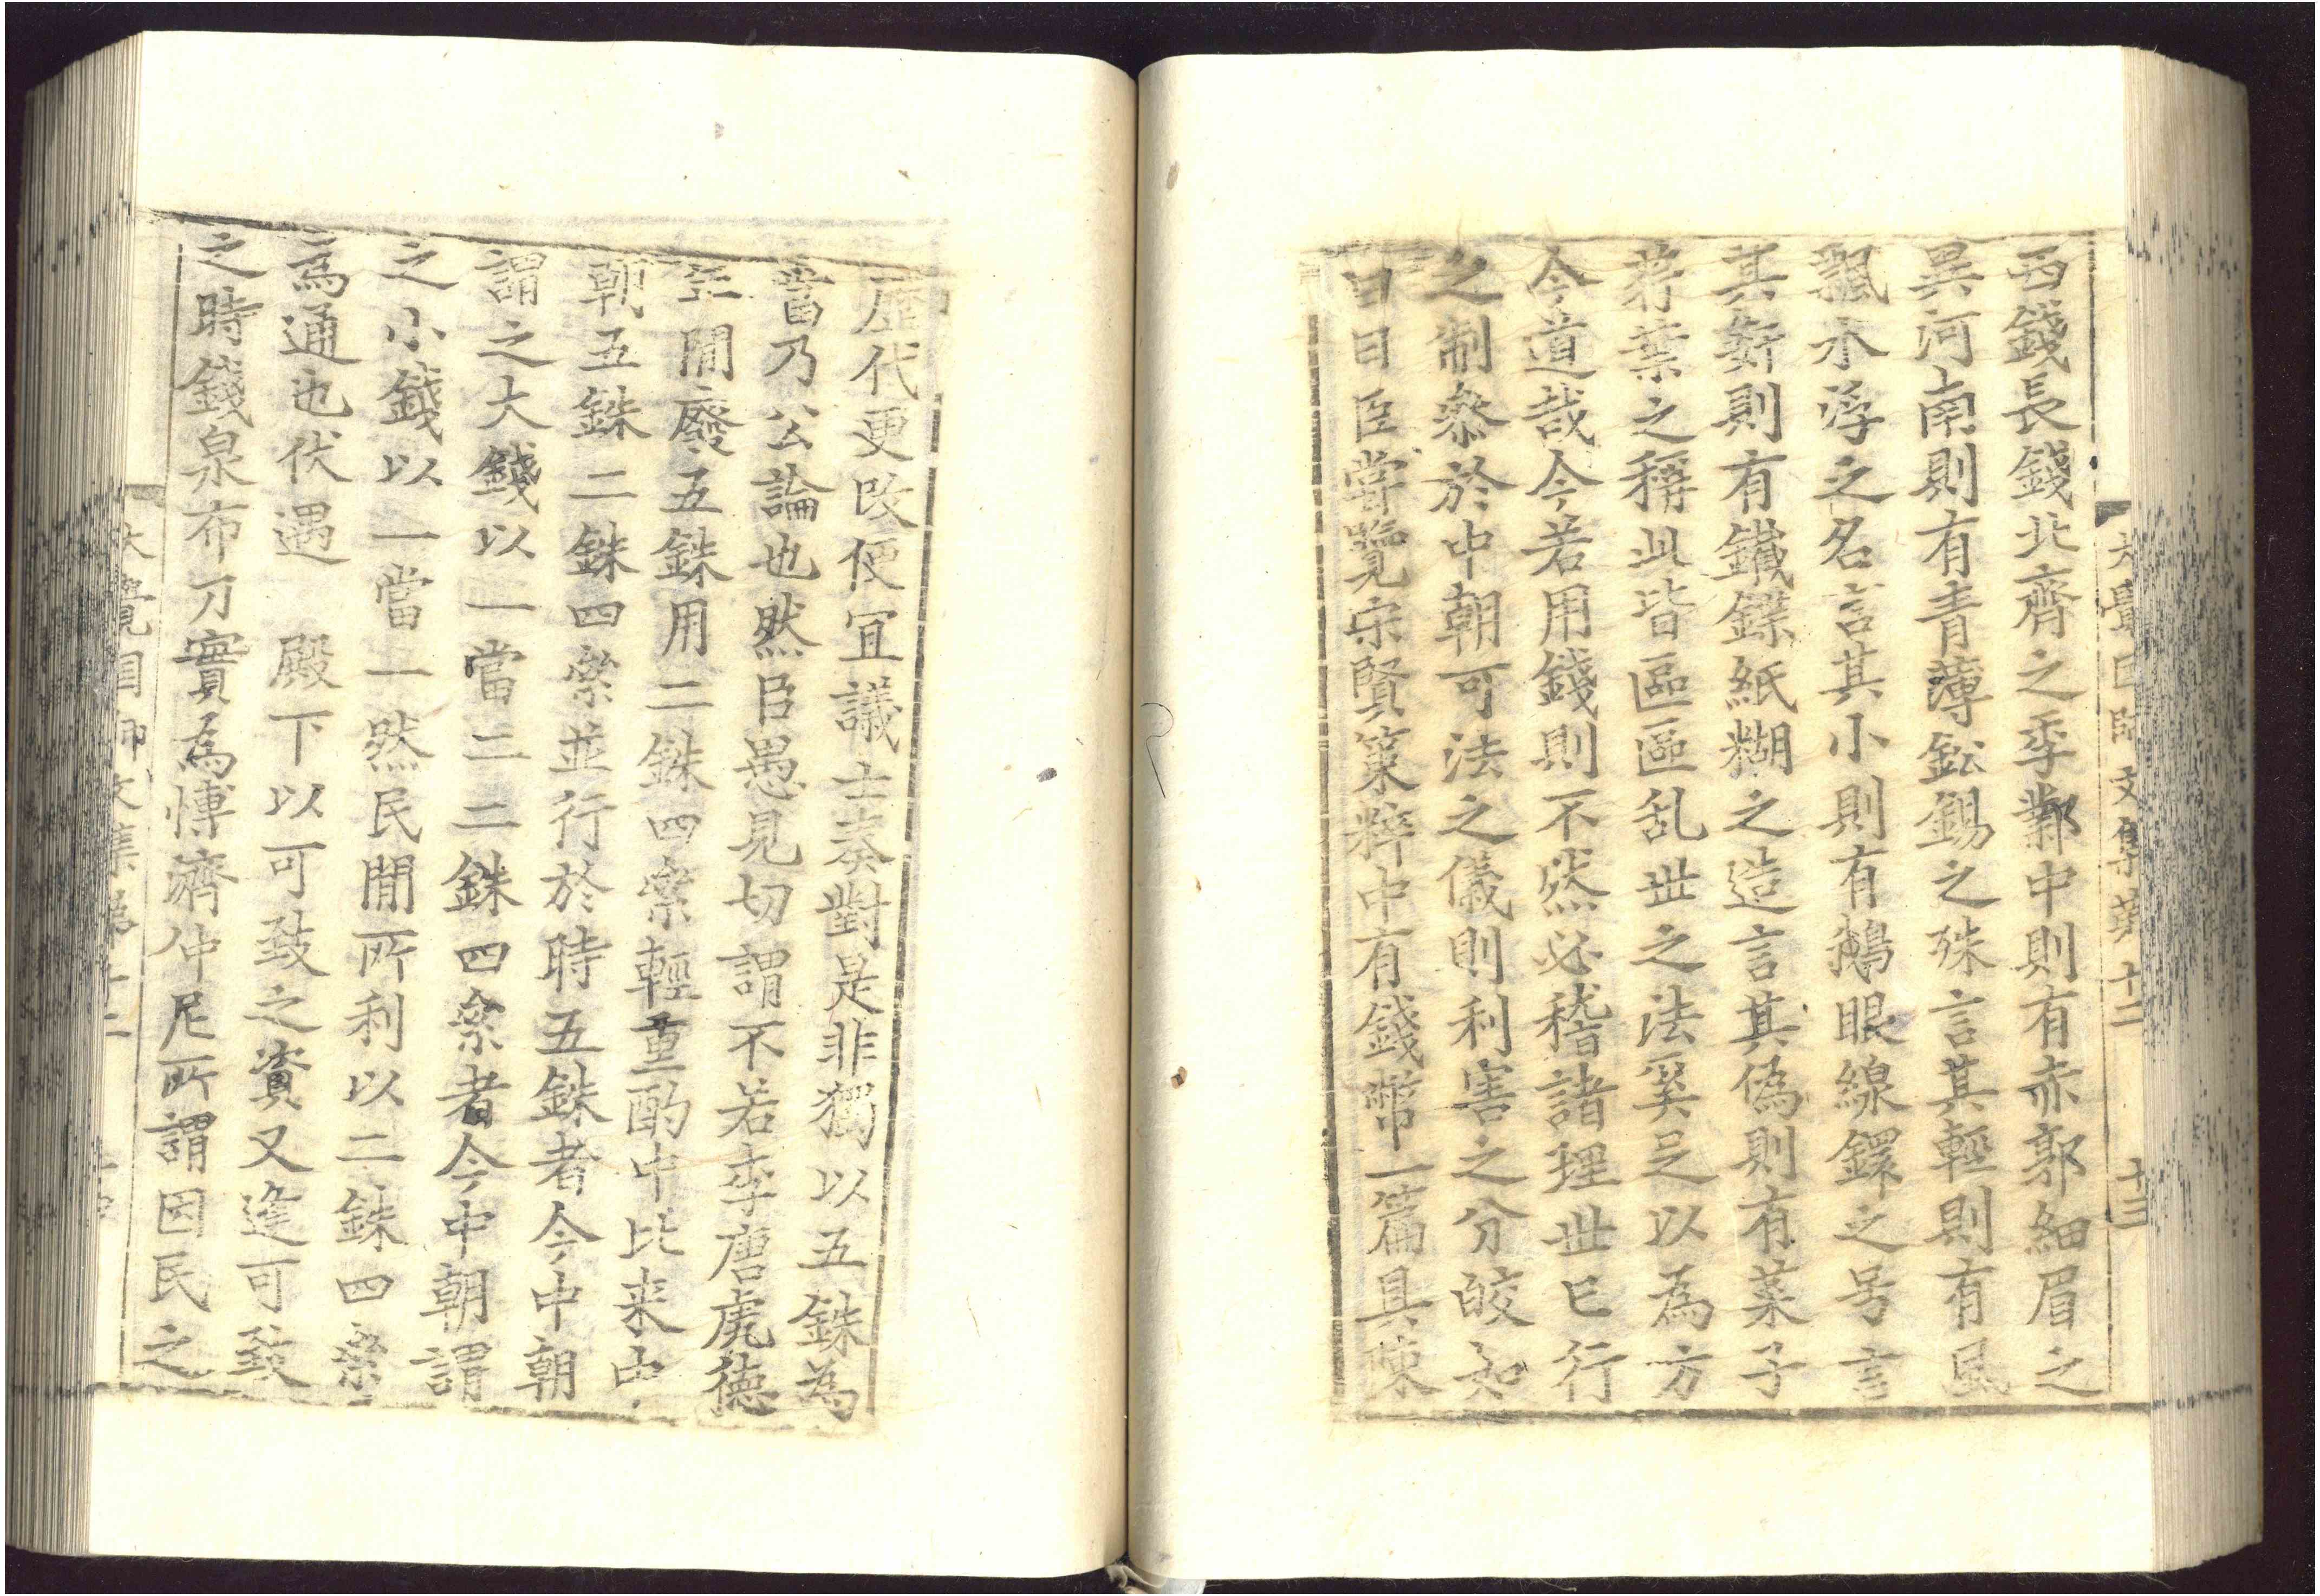 大覺国師文集第十二 十三
西錢長錢北齊之季鄴中則有赤郭細眉之
異河南則有青薄鈆錫之殊言其輕則有風
飄水浮之名言其小則有鵝眼線鐶之号言
其姧則有鐵鍱紙糊之造言其偽則有菜子
荇葉之稱此皆區區乱世之法奚足以為方
今道哉今若用錢則不然必稽諸理世已行
之制叅於中朝可法之儀則利害之分皎如
白日臣嘗覽宋賢筞粹中有錢幣一篇具陳
歷代更改便宜議士奏對是非獨以五銖為
當乃公論也然臣愚見切謂不若李唐虎德
年閒廢五銖用二銖四絫輕重酌中比来中
朝五銖二銖四絫並行於時五銖者今中朝
謂之大錢以一當三二銖四絫者今中朝謂
之小錢以一當一然民閒所利以二銖四絫
為通也伏遇 殿下以可致之資又逢可致
之時錢泉布刀實為愽濟仲尼所謂因民之
大覺國師文集第十二